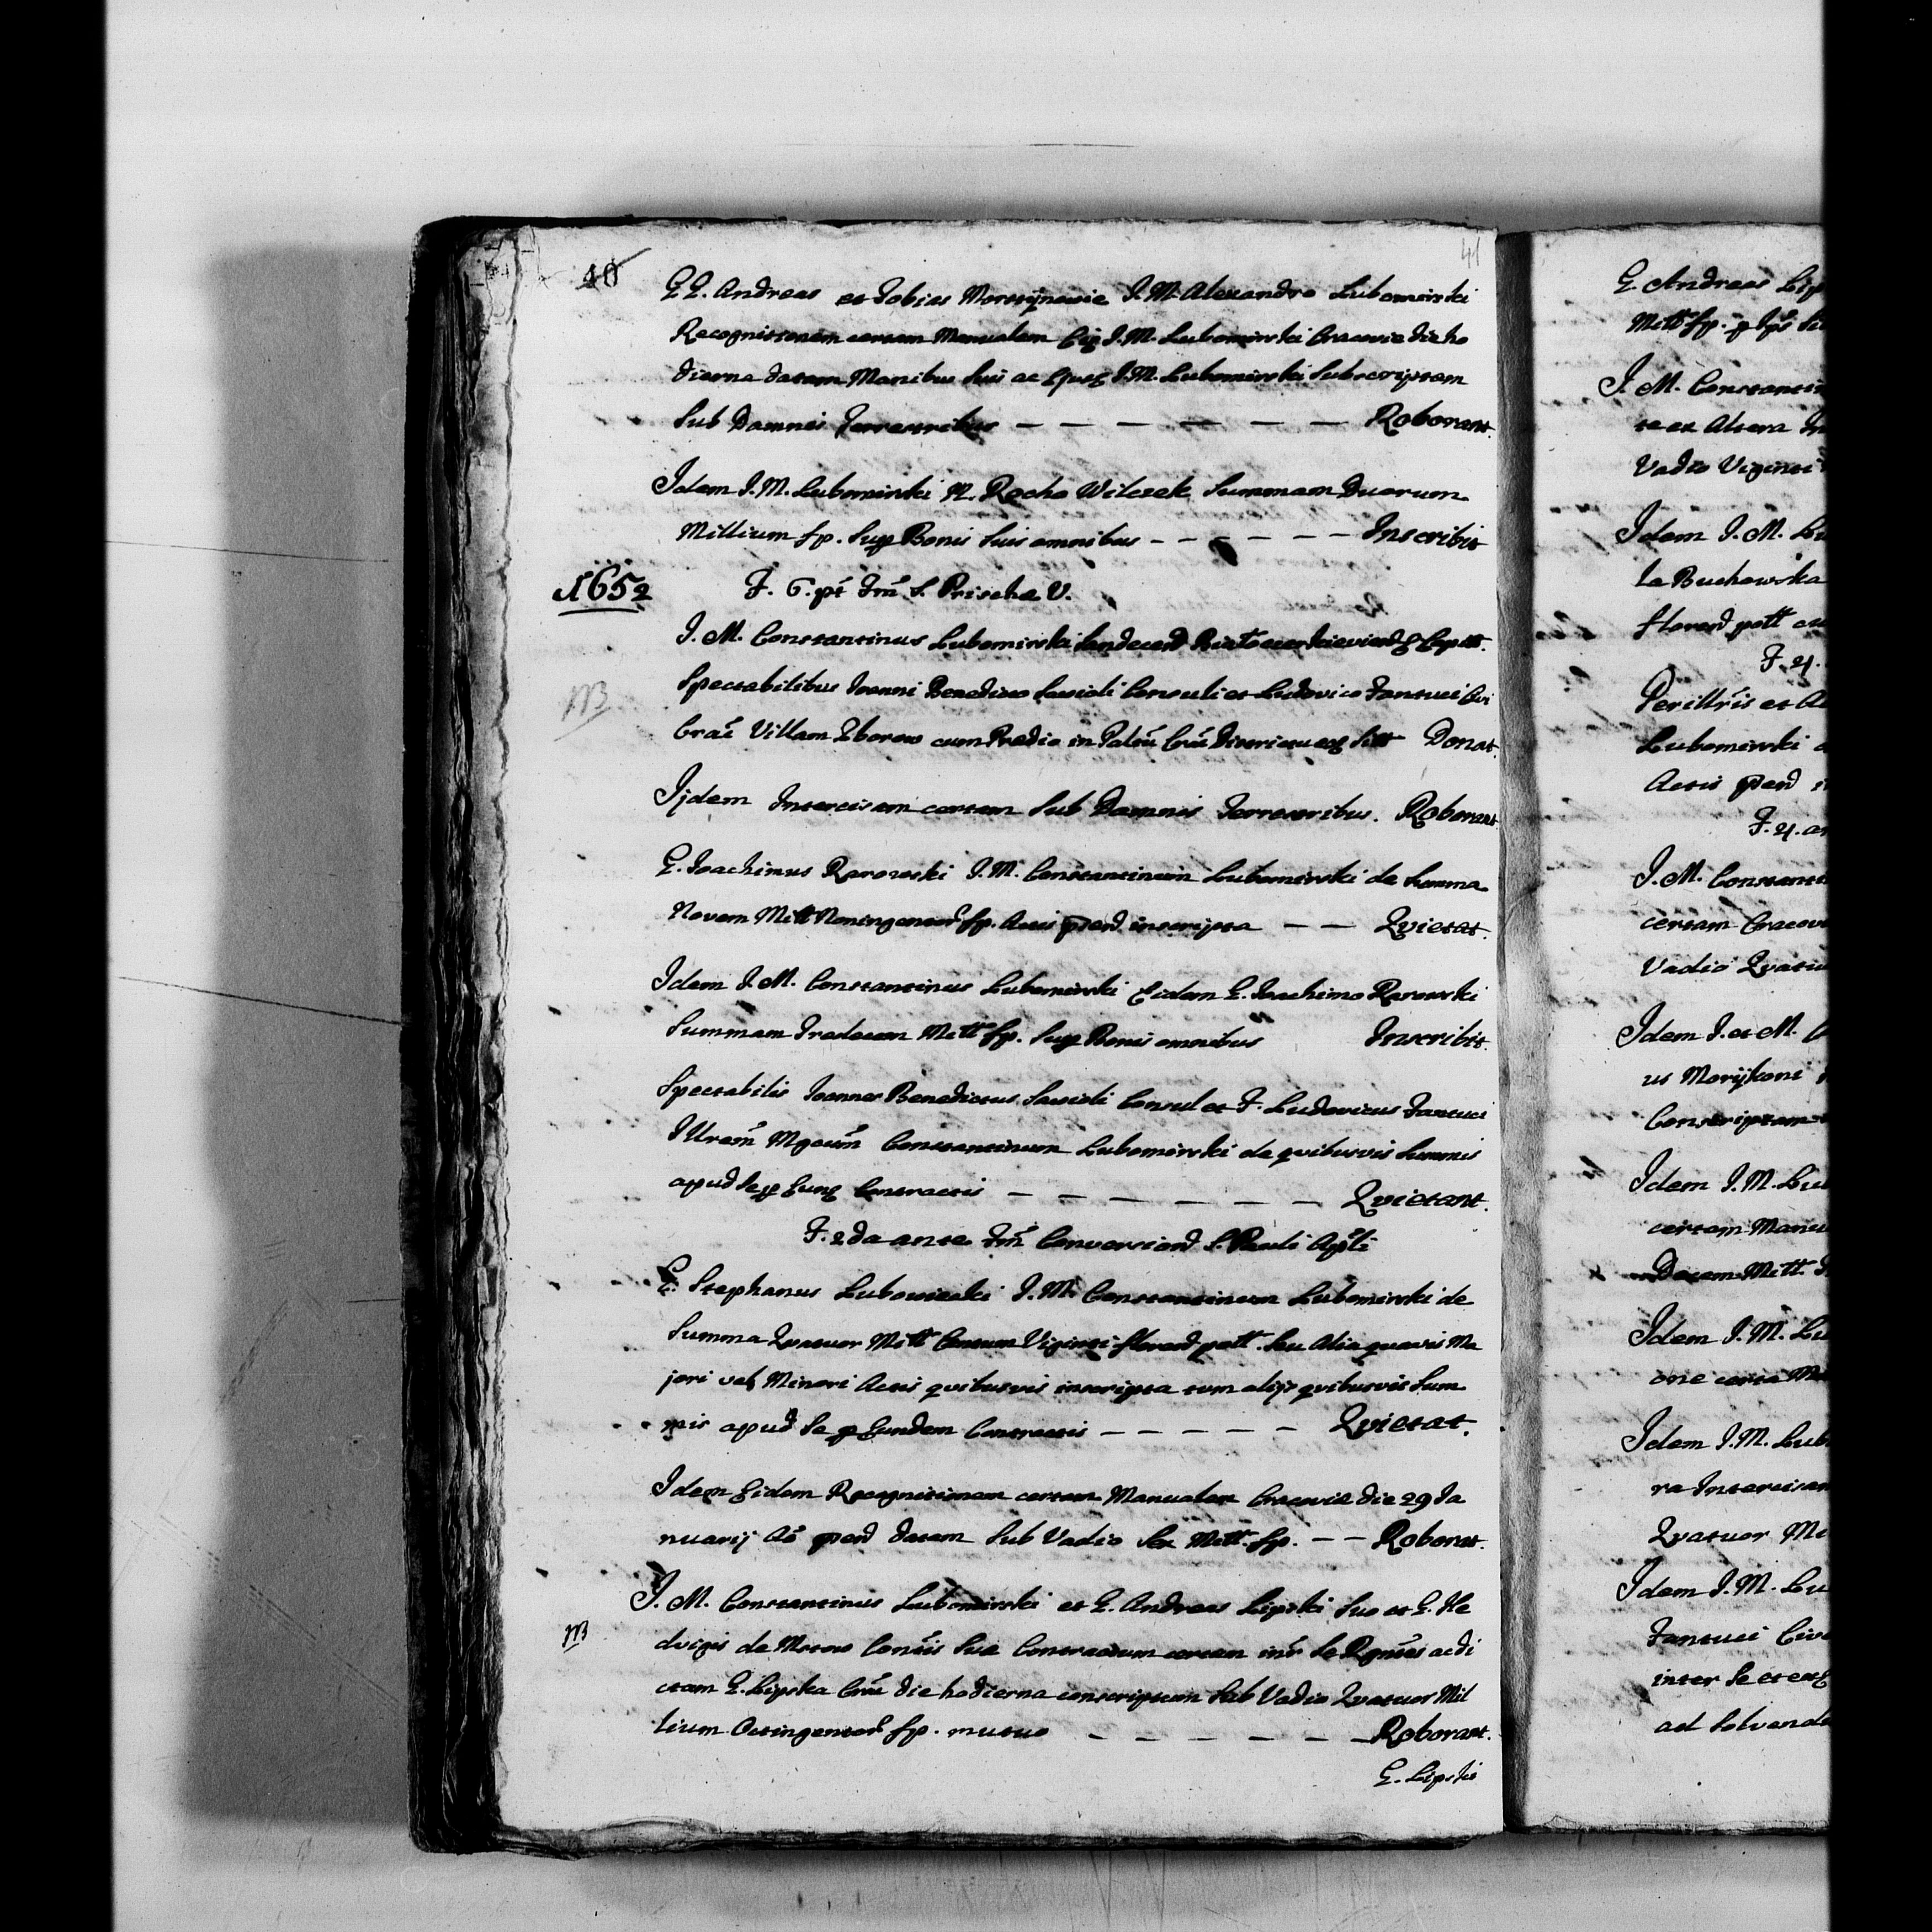 40
41
G.G. Andreas et Tobias Morstÿnowie I. M. Alexandro Lubomirski
Recognitionem certam Manualem Eiq I. M. Lubomirski Cracovie die ho
dierna datam Manibus Suis ac Ejusq I. M. Lubomirski Subscriptam
Sub Damnis Terrestribus – – – – – – – Roborant.
Idem I. M. Lubomirski Rocho Wilczek Summam Duorum
Millium fp. Sup Bonis Suis omnibus – – – – – – Inscribit
1652
F. 6. pt fm S. Prischæ V.
I. M. Constantinus Lubomirski Sandecen Capitt.
Spectabilibus Joanni Benedicto Savioli Consuli et Ludovico Fantuci Civi
Crac Villam Zborow cum Prædio in Palttu Crac Districtu eoq Sitt Donat.
Ijdem Intercisam certam Sub Damnis Terrestribus. Roborant
G. Joachimus Rarowski I. M. Constantinum Lubomirski de Summa
Novem Mill Noningentor fp. Actis pnd inscripta – – Qvietat.
Idem I. M. Constantinus Lubomirski Eidem G. Joachimo Rarowski
Summam Tredecem Mill fp. Sup Bonis omnibus Inscribit.
Spectabilis Joannes Benedictus Savioli Consul et F. Ludovicus Fantuci
Illrem Mgcum Constantinum Lubomirski de qvibusvis Summis
apud Se p Eunq Contractis – – – – – – – Qvietant.
F. 2da ante fm Conversiond S. Pauli Apti
G. Stephanus Lubowiecki I. M. Constantinum Lubomirski de
Summa Qvatuor Mill Centum Viginti florend poll. Seu Alia quavis Ma
jori vel Minori Actis qvibusvis inscripta tum alijs qvibusvis Sum
mis apud Se p Eundem Contractis – – – – – Qvietat.
Idem Eidem Recognitionem certam Manualem Cracoviæ die 29 Ja
nuarij Ao pnd datam Sub Vadio Sex Mill. fp. – – Roborat.
I. M. Constantinus Lubomirski et G. Andreas Lipski Suo et G. He
dvigis de Contis Suæ Contractum certum intr Se Rgntes ac di
ctam G. Lipska Crac die hodierna conscriptum Sub Vadio Qvatuor Mil
lium Octingentor fp. mutuo – – – – – – Roborant.
G. Lipski
G. Andreas Lip
I. M. Constantin
te ex Altera In
Vadio Viginti
Idem I. M. Lu
la Buchowska
florend poll
F. 4.
Perillris et
Lubomirski
Actis pnd
F. 4. an
I. M. Constant
certam Cracov
Vadio Qvatuo
Idem I. et M.
us Morÿkoni
Conscriptam
Idem I. M. Lub
certam Manu
Decem Mill.
Idem I. M. Lu
one certa Ma
Idem I. M. Lub
ra Intercisam
Qvatuor Mi
Idem I. M. Lu
Fantuci Cive
inter Se
ad Solvende